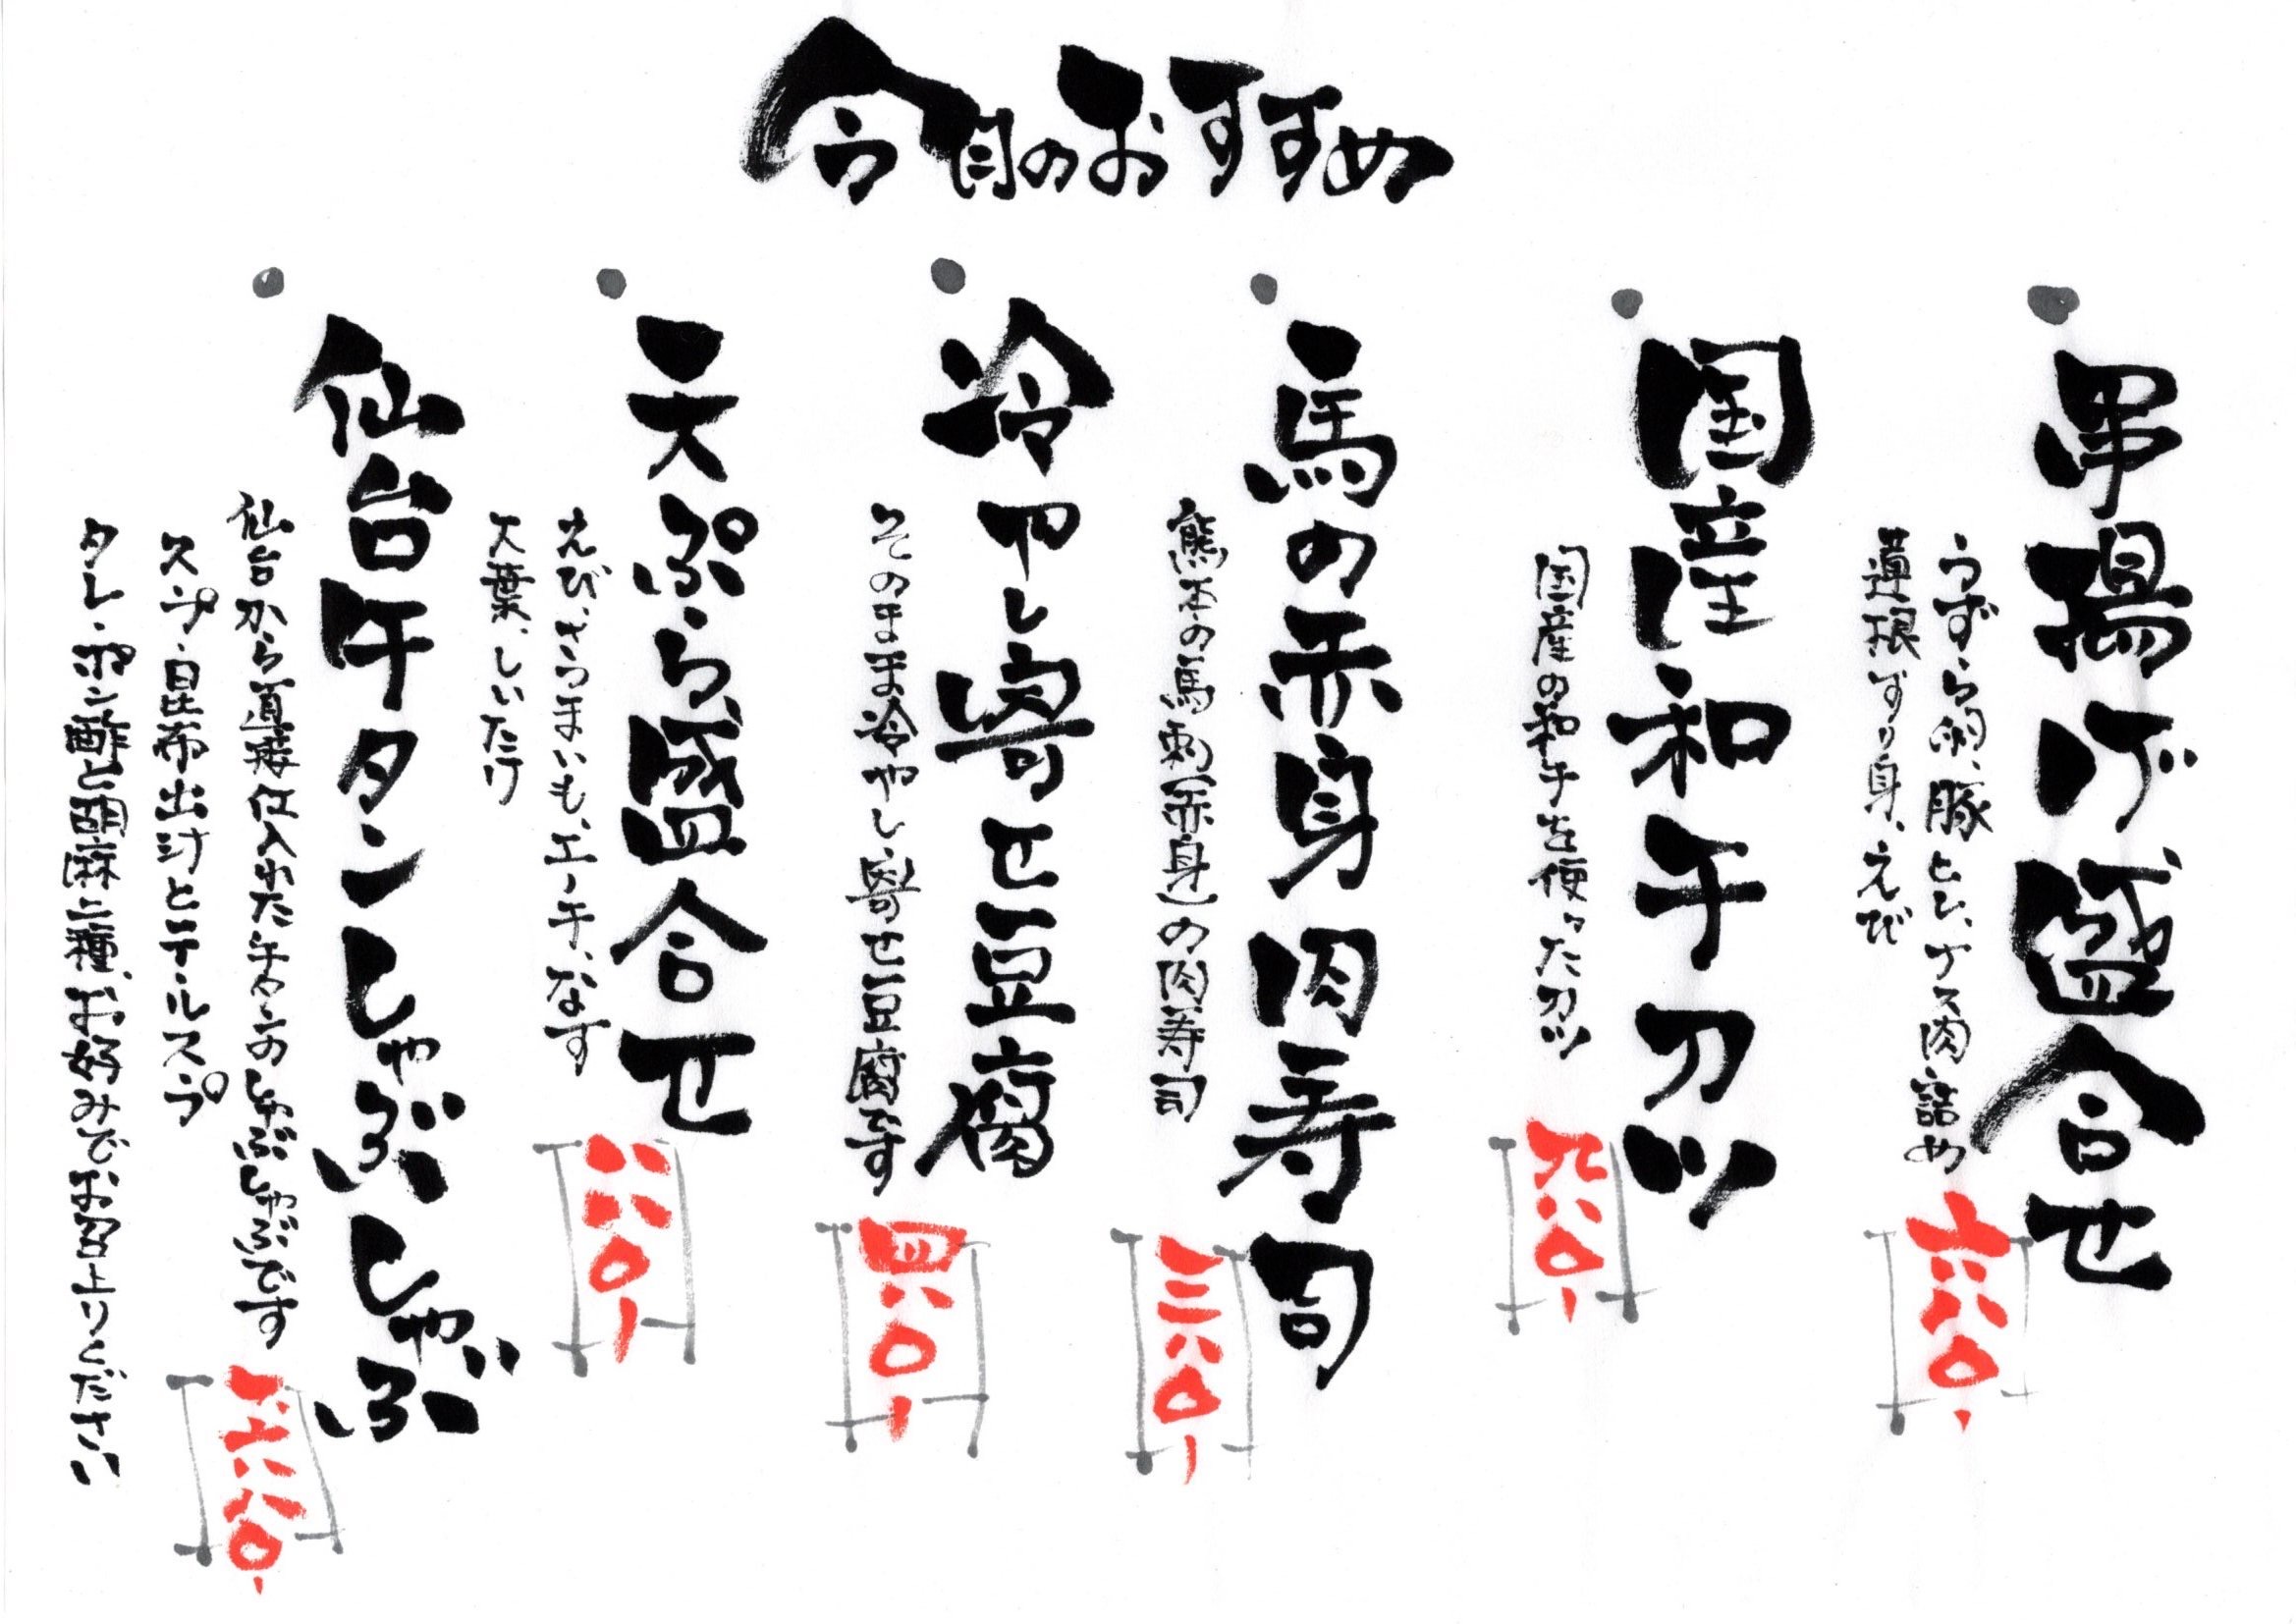 今月のおすすめ
串揚げ盛合せ
うずら卵、豚ヒレ、ナス肉詰め
蓮根すり身、えび
六八〇-
国産和牛刀ツ
国産の和牛を使った刀ツ
九八〇-
馬の赤身肉寿司
熊本の馬刺(赤身)の肉寿司
三八〇-
冷やし寄せ豆腐
そのまま冷やし寄せ豆腐です
四八〇-
天ぷら盛合せ
えび、さつまいも、エノキ、なす
大葉、しいたけ
八八〇-
仙台牛タンしゃぶしゃぶ
仙台から直接仕入れた牛タンのしゃぶしゃぶです
スープ・昆布出汁とテールスープ
タレ・ポン酢と胡麻二種、お好みでお召上りください
八〇-